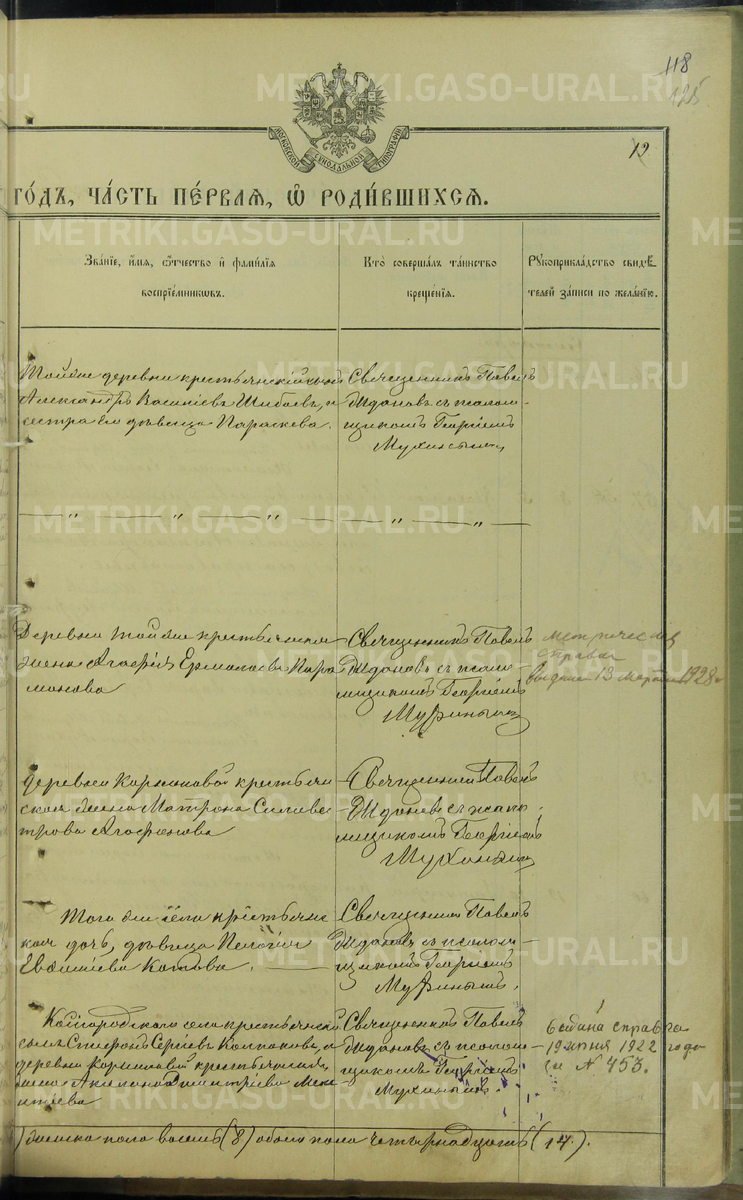 118
125
12
МОСКОВСКОЙ СИНОДАЛЬНОЙ ТИПОГРАФІИ
ГО́ДЪ, ЧА́СТЬ ПЕ́РВАЯ, Ѡ҆ РОДИ́ВШИХСЯ.
Зва́нїе, и҆́мя, ѻ҆́тчество и҆ фами́лїя
воспрїе́мникѡвъ.
Кто̀ соверша́лъ та́инство
креще́нїя.
Рꙋкоприкла́дство свидѣ́-
телей за́писи по жела́нїю.
Той же деревни крестьянскій сынъ
Александръ Василіевъ Шибаевъ, и
сестра его дѣвица Параскева.
Священникъ Павелъ
Ждановъ съ псалом-
щикомъ Георгіемъ
Мухинымъ
— „ — „ — „ — „ — „ —
Деревни той же крестьянская
жена Агафія Ермолаева Пара
монова
Священникъ Павелъ
Ждановъ съ псало-
мщикомъ Георгіемъ
Мухинымъ
метрическая
справка
выдана 13 марта 1928 г
Деревни Кормиловой крестьян
ская жена Матрона Силивес
трова Агафонова
Священникъ Павелъ
Ждановъ съ псало-
мщикомъ Георгіемъ
Мухинымъ
Того же села крестьянс
кая дочь, дѣвица Пелагія
Котова.
Священникъ Павелъ
Ждановъ съ псалом-
щикомъ Георгіемъ
Мухинымъ.
села крестьянскій
сынъ Стефанъ Сергіевъ Колпаковъ, и
деревни Кормиловой крестьянская
жена Дмитріева
Священникъ Павелъ
Ждановъ съ псалом-
щикомъ Георгіемъ
Мухинымъ.
выдана справка
19 1922 года
за № 453.
) женска пола восемь (8) обоего пола четырнадцать (14).
METRIKI.GASO-URAL.RU